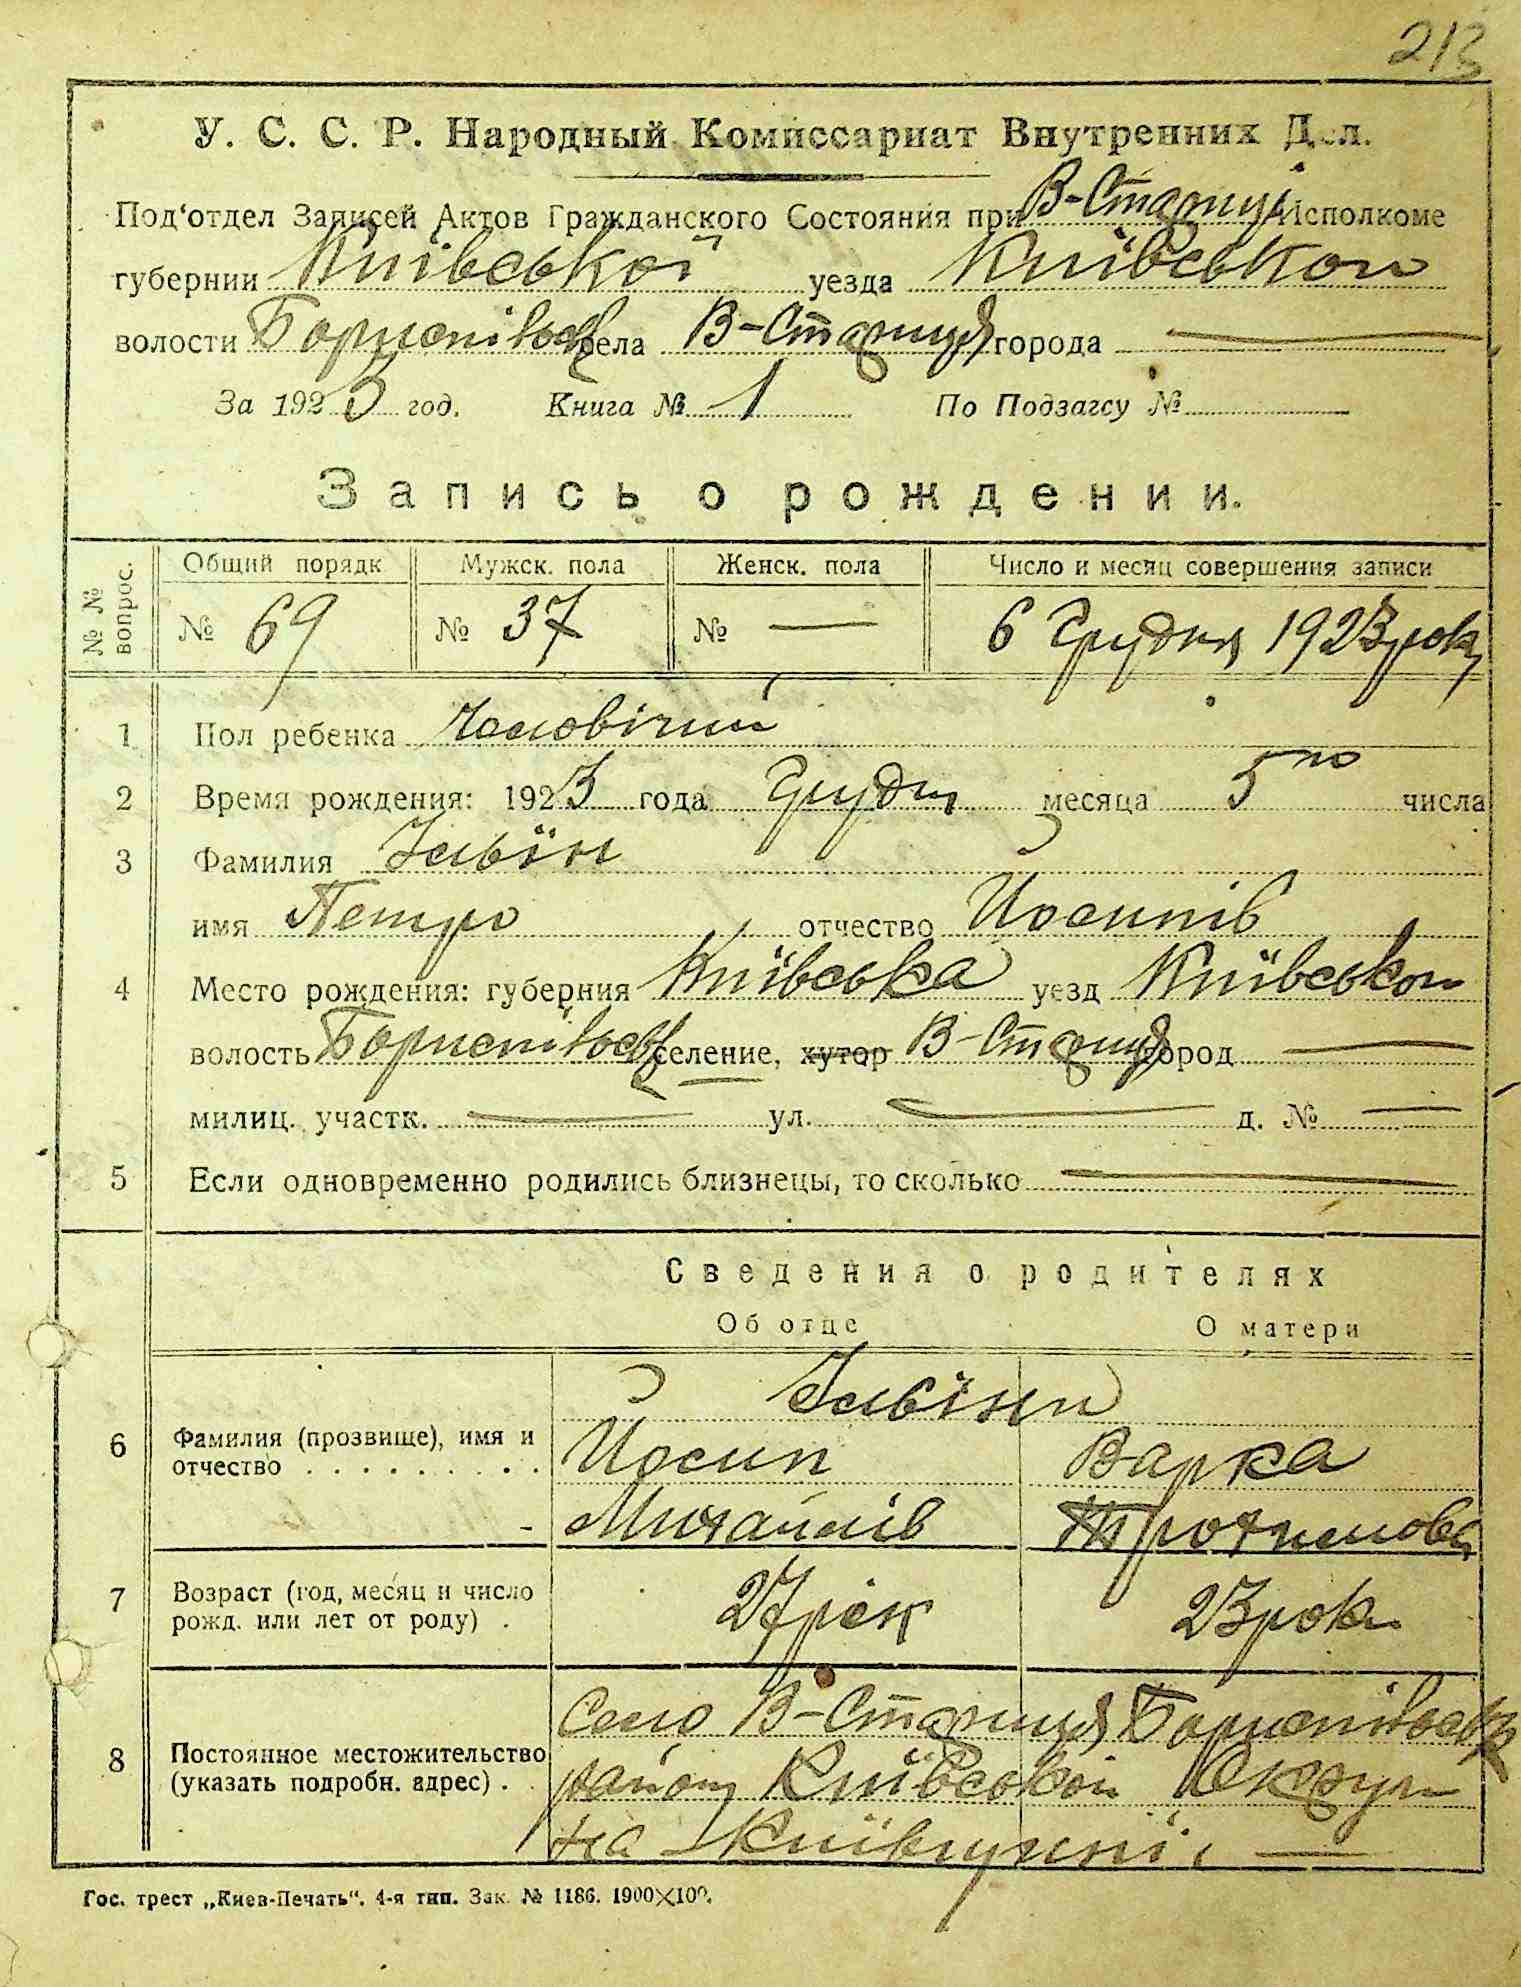 213
У. С. С. Р. Народный Комиссариат Внутренних Дел.
Под'отдел Записей Актов Гражданского Состояния при В-Стариці Исполкоме
губернии Київської уезда Київськои
волости Бориспільськ села В-Стариця города —
За 1923 год. Книга № 1 По Подзагсу №
Запись о рождении.
№ № вопрос. Общий порядк Мужск. пола Женск. пола Число и месяц совершения записи
№ 69 № 37 № — 6 Грудня 1923 рок
1 Пол ребенка Чоловічий
2 Время рождения: 1923 года Грудня месяца 5го числа
3 Фамилия Ільїн
имя Петро отчество Йосипів
4 Место рождения: губерния Київська уезд Київськои
волость Бориспільськ селение, хутор В-Стариця город —
милиц. участк. — ул. — д. № —
5 Если одновременно родились близнецы, то сколько —
Сведения о родителях
Об отце О матери
Ільїни
6 Фамилия (прозвище), имя и Йосип Варка
отчество . . . . . . . . . . Михайлів Трохимова
7 Возраст (год, месяц и число
рожд. или лет от роду) . 27 рік 23 рок
Село В-Стариця Бориспільськ
8 Постоянное местожительство
(указать подробн. адрес) . району Київської Округи
на Київщині —
Гос. трест „Киев-Печать". 4-я тип. Зак. № 1186. 1900×100.